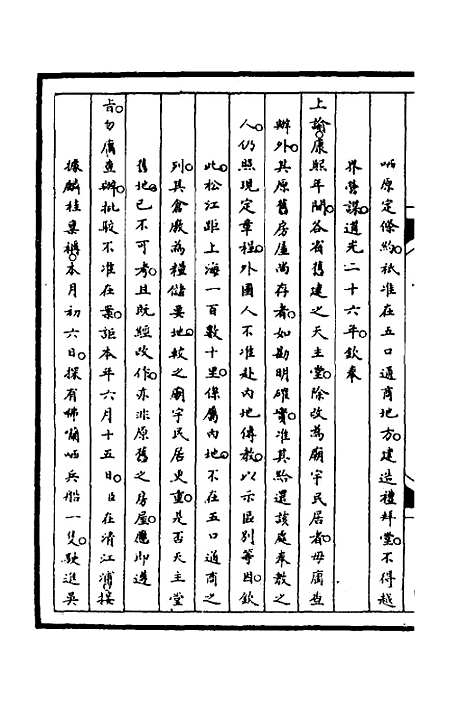 哂原定條約祇准在五口通商地方建造禮拜堂不得越
界營謀道光二十六年欽奉
上諭康熙年間各省舊建之天主堂除改為廟宇民居者毋庸查
辦外其原舊房屋尚存者如勘明確實准其給還該處奉教之
人仍照現定章程外國人不准赴內地傳教以示區別等因欽
此松江距上海一百數十里係屬內地不在五口通商之
列其倉廒為糧儲要地較之廟宇民居更重是否天主堂
舊地已不可考且既經改作亦非原舊之房屋應即遵
旨勿庸查辦批駁不准在案詎本年六月十五日臣在清江浦接
據麟桂稟稱本月初六日探有咈囒哂兵船一隻駛進吳